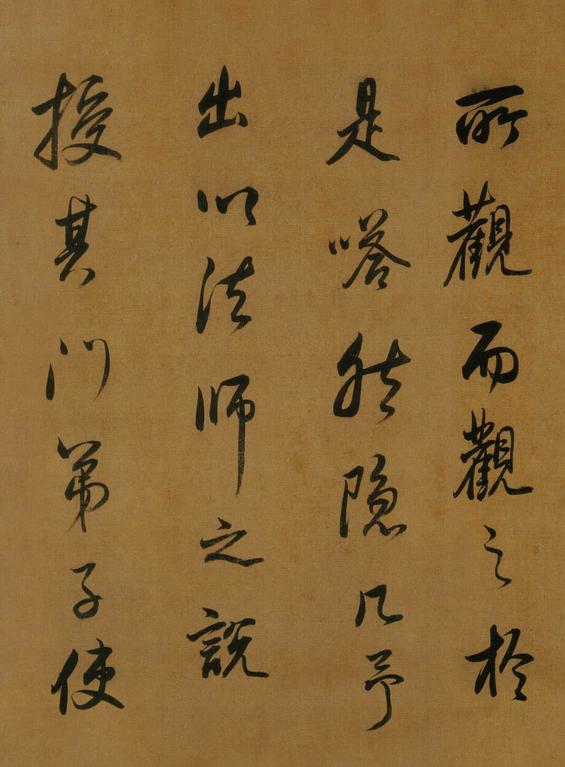 所觀而觀之於
是嗒然隐几予
出以法師之說
授其門弟子使